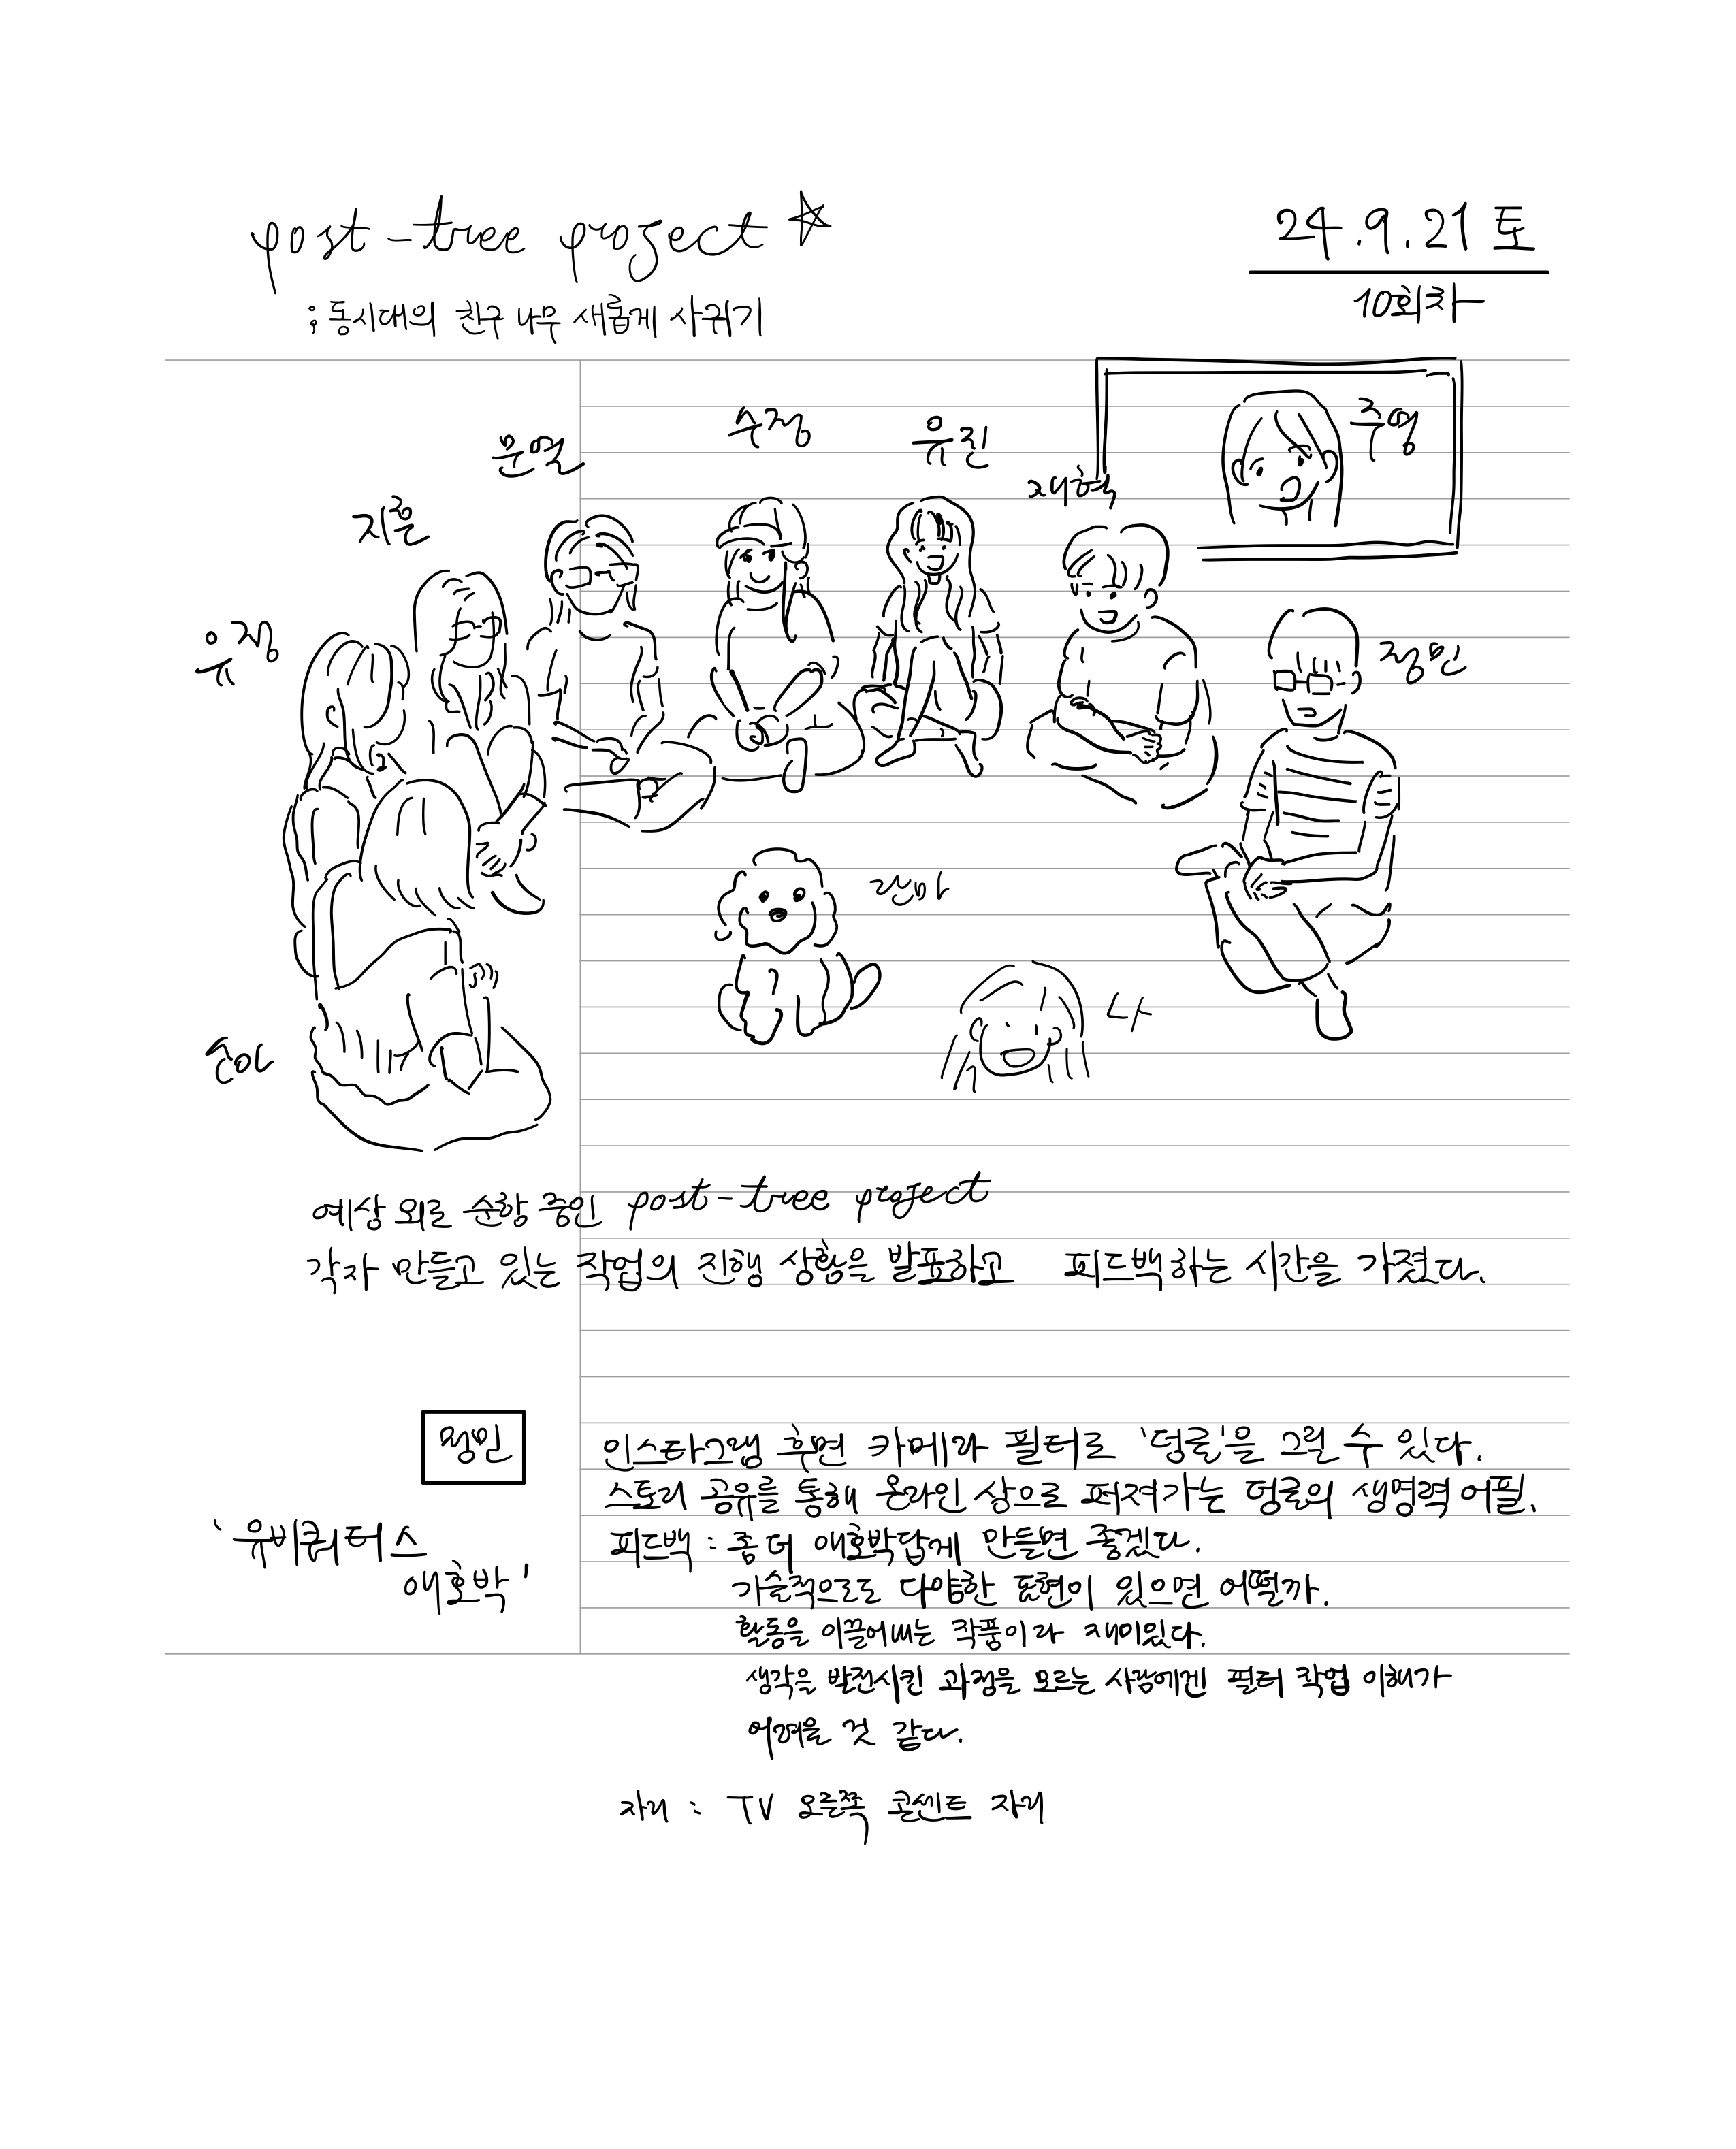 post-tree project
24.9.21 토
; 동시대의 친구 나무 새롭게 사귀기
10회차
주영
수정
유진
운열
재혁
지훈
유정
정민
란마
나
순아
예상 외로 순항 중인 post-tree project
각자 만들고 있는 작업의 진행 상황을 발표하고 피드백하는 시간을 가졌다.
정민
인스타그램 후면 카메라 필터로 '덩굴'을 그릴 수 있다.
스토리 공유를 통해 온라인 상으로 퍼져가는 덩굴의 생명력 어필.
'유비쿼터스
애호박'
피드백 : 좀 더 애호박답게 만들면 좋겠다.
기술적으로도 다양한 표현이 있으면 어떨까.
활동을 이끌어내는 작품이라 재미있다.
생각을 발전시킨 과정을 모르는 사람에겐 필터 작업 이해가
어려울 것 같다.
자리 : TV 오른쪽 콘센트 자리